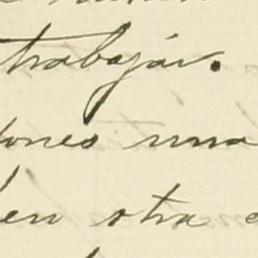 trabajár.
ones una
en otra